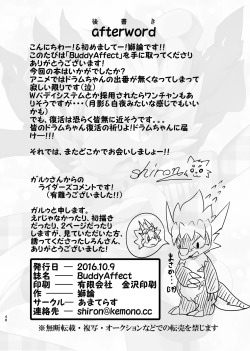 後書き
afterword
こんにちわー!&初めましてー!獅論です!!
このたびは「BuddyAffect」を手に取ってくださり
ありがとうございます!
今回の本はいかがでしたか?
アニメではドラムちゃんの出番が無くなってしまって
寂しい限りです(泣)
Wバディシステムとか採用されたらワンチャンもあ
りそうですが・・・(月影&白夜みたいな感じでもいい
から)
でも、復活は恐らく皆無に近そうです。。。
皆のドラムちゃん復活の祈りよ!ドラムちゃんに届
けー!!!
それでは、またどこかでお会いしましょー!!
shiron
ガルゥさんからの
ライダーズコメントです!
(有難うございました!!)
ガルゥと申します。
えドじゃなかったり、初描き
だったり、2ページだったり
しますが、見ていただいた方、
誘ってくださったしろんさん、
ありがとうございました!
発行日 ― 2016.10.9
誌名 ― BuddyAffect
印刷 ― 有限会社 金沢印刷
作者 ― 獅論
サークル― あまてらす
連絡先 ― shiron@kemono.cc
※無断転載・複写・オークションなどでの転売を禁じます